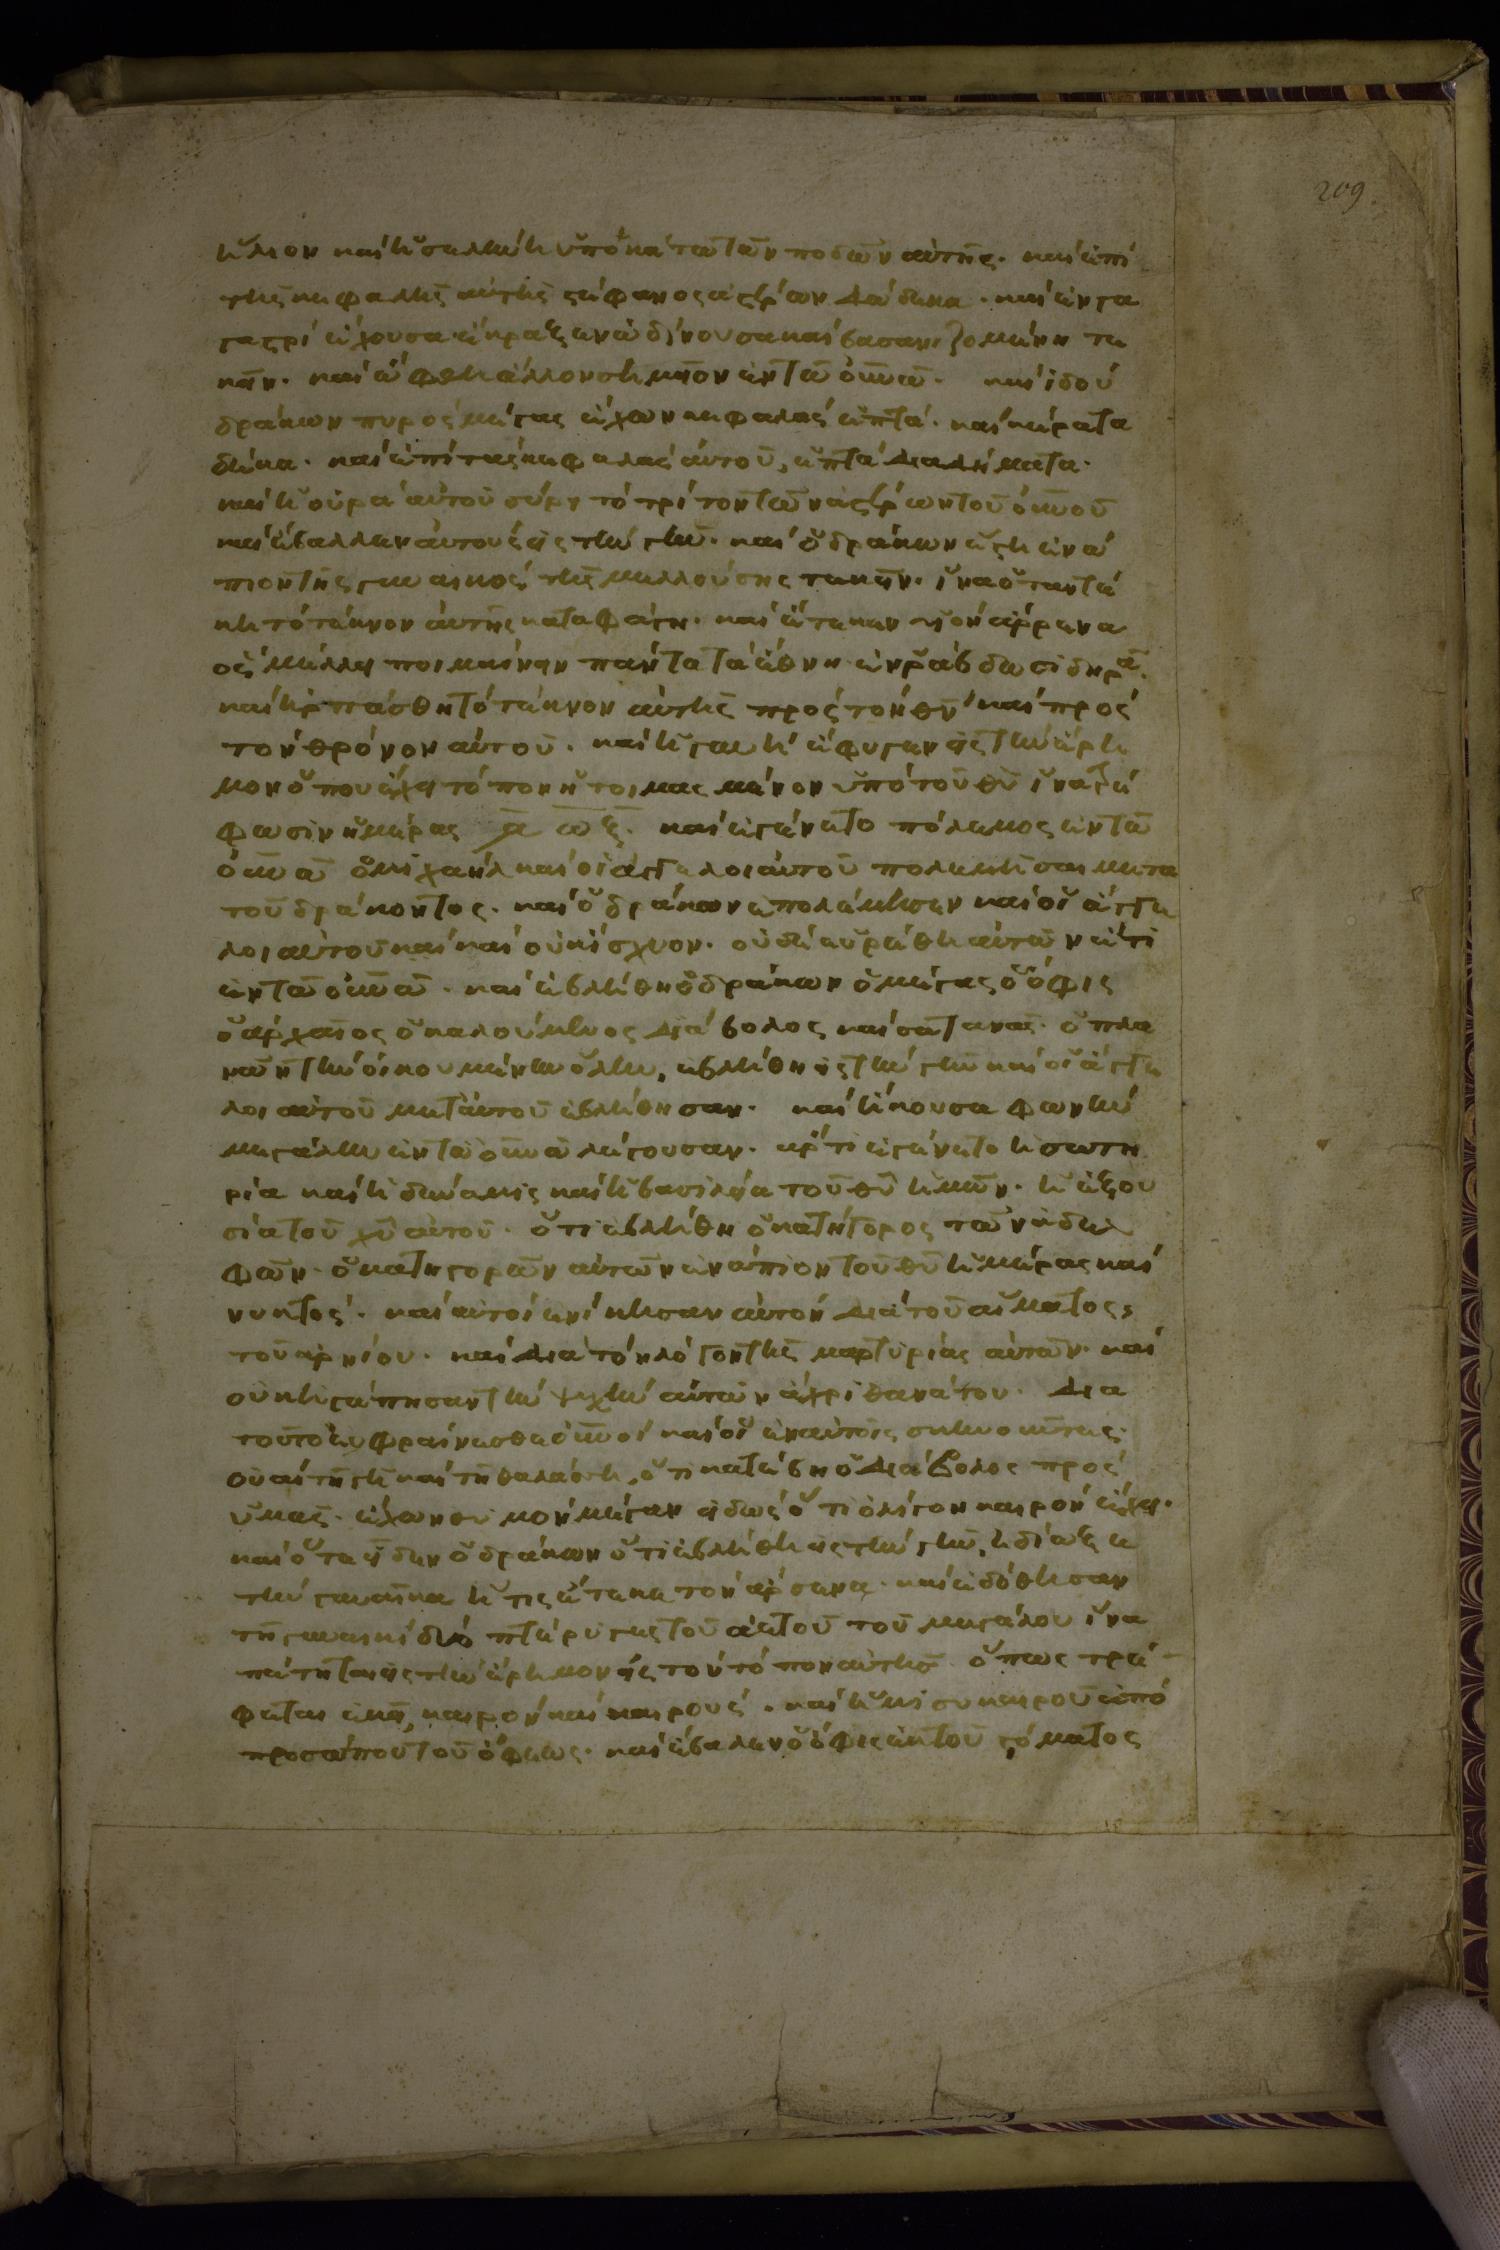 209
ἥλιον καὶ ἡ σελήνη ὑποκάτω τῶν ποδῶν αὐτῆς· καὶ ἐπὶ
τῆς κεφαλῆς αὐτῆς στέφανος ἀστέρων δώδεκα· καὶ ἐν γα
γαστρὶ ἔχουσα ἔκραζεν ὠδίνουσα καὶ βασανιζομένη τε
κεῖν· καὶ ὤφθη ἄλλον σημεῖον ἐν τῶ οὐνω· καὶ ἰδοὺ
δράκων πυρὸς μέγας ἔχων κεφαλὰς ἑπτά· καὶ κέρατα
δέκα· καὶ ἐπὶ τὰς κεφαλὰς αὐτοῦ, ἑπτὰ διαδήματα·
καὶ ἡ οὐρὰ αὐτοῦ σύρει τὸ τρίτον τῶν ἀστέρων τοῦ οὐνου
καὶ ἔβαλλεν αὐτοὺς εἰς τὴν γῆν· καὶ ὁ δράκων ἕστη ἐνώ
πιον τῆς γυναικὸς τῆς μελλούσης τεκεῖν· ἵνα ὅταν τέ
κη τὸ τέκνον αὐτῆς καταφάγη· καὶ ἔτεκεν υἱὸν ἄρρενα
ὃς μέλλει ποιμαίνειν πάντα τὰ ἔθνη ἐν ῥάβδω σιδηρᾶ·
καὶ ἡρπάσθη τὸ τέκνον αὐτῆς πρὸς τὸν θν καὶ πρὸς
τὸν θρόνον αὐτοῦ· καὶ ἡ γυνὴ ἔφυγεν εἰς τὴν ἔρη
μον ὅπου ἔχει τόπον ἡτοιμασμένον ὑπὸ τοῦ θυ ἵνα τρέ
φωσιν ἡμέρας α ω ξ· καὶ ἐγένετο πόλεμος ἐν τῶ
οὐνω ὁ μιχαὴλ καὶ οἱ ἄγγελοι αὐτοῦ πολεμῆσαι μετὰ
τοῦ δράκοντος· καὶ ὁ δράκων ἐπολέμησεν καὶ οἱ ἄγγε
λοι αὐτοῦ καὶ καὶ οὐκ ἴσχυον· οὐδὲ εὑρέθη αὐτῶν ἔτι
ἐν τῶ οὐνω· καὶ ἐβλήθη ὁ δράκων ὁ μέγας ὁ ὄφις
ὁ ἀρχαῖος ὁ καλούμενος διάβολος καὶ σατανᾶς· ὁ πλα
νῶν τὴν οἰκουμένην ὅλην, ἐβλήθη εἰς τὴν γῆν καὶ οἱ ἄγγε
λοι αὐτοῦ μετ αὐτοῦ ἐβλήθησαν· καὶ ἤκουσα φωνὴν
μεγάλην ἐν τῶ οὐνω λέγουσαν· ἄρτι ἐγένετο ἡ σωτη
ρία καὶ ἡ δύναμις καὶ ἡ βασιλεία τοῦ θυ ἡμῶν· ἡ ἐξου
σία τοῦ χυ αὐτοῦ· ὅτι ἐβλήθη ὁ κατήγορος τῶν ἀδελ
φῶν· ὁ κατηγορῶν αὐτῶν ἐνώπιον τοῦ θυ ἡμέρας καὶ
νυκτός· καὶ αὐτοὶ ἐνίκησαν αὐτὸν διὰ τοῦ αἵματος
τοῦ ἀρνίου· καὶ διὰ τὸν λόγον τῆς μαρτυρίας αὐτῶν· καὶ
οὐκ ἠγάπησαν τὴν ψυχὴν αὐτῶν ἄχρι θανάτου· διὰ
τοῦτο εὐφραίνεσθε οὐνοὶ καὶ οἱ ἐν αὐτοῖς σκηνοῦντες·
οὐαὶ τῆ γῆ καὶ τῆ θαλάσση, ὅτι κατέβη ὁ διάβολος πρὸς
ὑμᾶς· ἔχων θυμὸν μέγαν εἰδὼς ὅτι ὀλίγον καιρὸν ἔχει·
καὶ ὅτε εἶδεν ὁ δράκων ὅτι ἐβλήθη εἰς τὴν γῆν, ἐδίωξε
τὴν γυναῖκα ἥτις ἔτεκε τὸν ἄρσενα· καὶ ἐδόθησαν
τῆ γυναικὶ δύο πτέρυγες τοῦ ἀετοῦ τοῦ μεγάλου ἵνα
πέτηται εἰς τὴν ἔρημον εἰς τὸν τόπον αὐτῆς· ὅπως τρέ
φεται ἐκεῖ, καιρὸν καὶ καιρούς· καὶ ἥμισυ καιροῦ ἀπὸ
προσώπου τοῦ ὄφεως· καὶ ἔβαλεν ὁ ὄφις ἐκ τοῦ στόματος